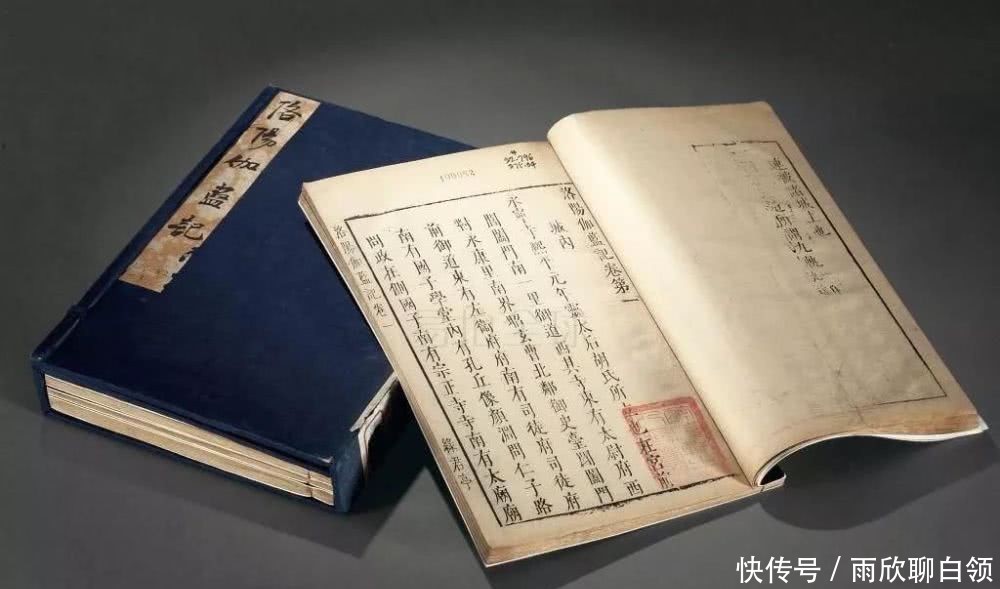 洛陽伽藍記
連被諸城上也
道所謂九軌
洛陽伽藍記卷第一
城内
永寧寺熙平元年靈太后胡氏所立在宮前
閶闔門南一里御道西其寺東有太尉府西
對永康里南界昭玄曹北鄰御史臺閶闔門
前御道東有左衛府府南有司徒府司徒府
南有國子學堂内有孔丘像顏淵問仁子路
問政在側國子南有宗正寺寺南有太廟廟
洛陽伽藍記卷一
綠君亭
快传号 / 雨欣聊白领